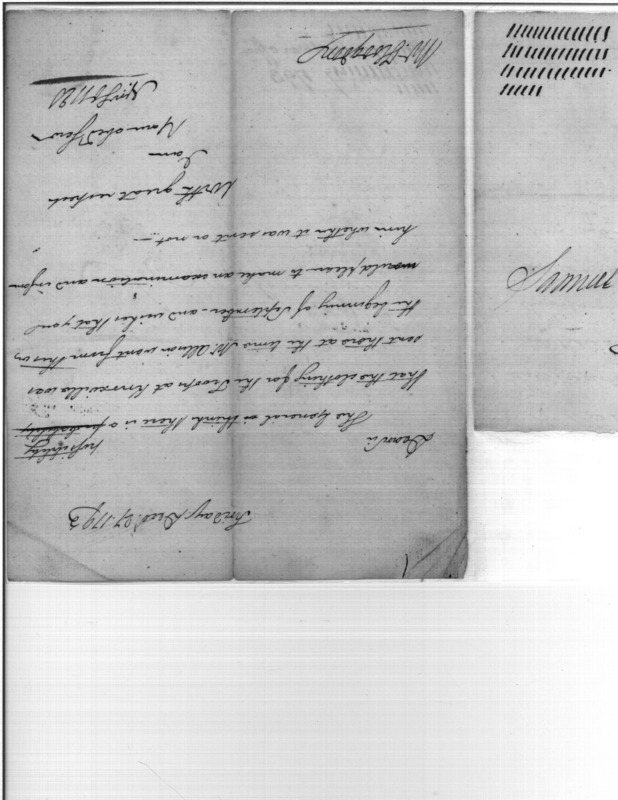 Friday, Decr. 27. 1793
Dear Sir
possibility
The General thinks there is a probability
that the clothing for the Troops at Knoxville was
sent there at the time Mr. Allison went from this in
the beginning of September - and wishes that you
would please to make an examination and inform
him whether it was sent or not.—
With great respect
I am
Your obed Serv
Mr Hodgdon
Samuel